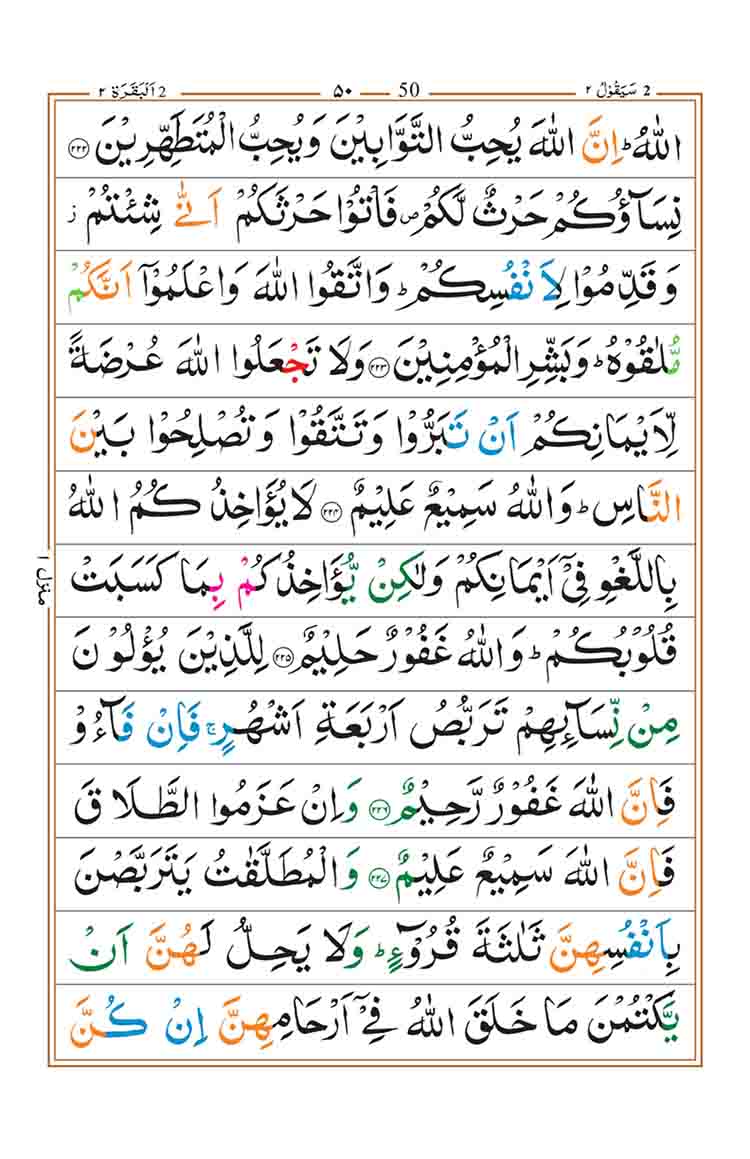 2 سَيَقُوْلُ ٢ 50 ٥٠ 2 اَلْبَقَرَة ٢
اللّٰهُ ؕ اِنَّ اللّٰهَ يُحِبُّ التَّوَّابِيْنَ وَيُحِبُّ الْمُتَطَهِّرِيْنَ ﴿۲۲۲﴾
نِسَآؤُكُمْ حَرْثٌ لَّكُمْ ص فَاْتُوْا حَرْثَكُمْ اَنّٰى شِئْتُمْ ز
وَقَدِّمُوْا لِاَنْفُسِكُمْ ؕ وَاتَّقُوا اللّٰهَ وَاعْلَمُوْۤا اَنَّكُمْ
مُّلٰقُوْهُ ؕ وَبَشِّرِ الْمُؤْمِنِيْنَ ﴿۲۲۳﴾ وَلَا تَجْعَلُوا اللّٰهَ عُرْضَةً
لِّاَيْمَانِكُمْ اَنْ تَبَرُّوْا وَتَتَّقُوْا وَتُصْلِحُوْا بَيْنَ
النَّاسِ ؕ وَاللّٰهُ سَمِيْعٌ عَلِيْمٌ ﴿۲۲۴﴾ لَا يُؤَاخِذُ كُمُ اللّٰهُ
بِاللَّغْوِ فِيْۤ اَيْمَانِكُمْ وَلٰكِنْ يُّؤَاخِذُكُمْ بِمَا كَسَبَتْ
قُلُوْبُكُمْ ؕ وَاللّٰهُ غَفُوْرٌ حَلِيْمٌ ﴿۲۲۵﴾ لِلَّذِيْنَ يُؤْلُوْنَ
مِنْ نِّسَآئِهِمْ تَرَبُّصُ اَرْبَعَةِ اَشْهُرٍ ۚ فَاِنْ فَآءُوْ
فَاِنَّ اللّٰهَ غَفُوْرٌ رَّحِيْمٌ ﴿۲۲۶﴾ وَاِنْ عَزَمُوا الطَّلَاقَ
فَاِنَّ اللّٰهَ سَمِيْعٌ عَلِيْمٌ ﴿۲۲۷﴾ وَالْمُطَلَّقٰتُ يَتَرَبَّصْنَ
بِاَنْفُسِهِنَّ ثَلٰثَةَ قُرُوْٓءٍ ؕ وَلَا يَحِلُّ لَهُنَّ اَنْ
يَّكْتُمْنَ مَا خَلَقَ اللّٰهُ فِيْۤ اَرْحَامِهِنَّ اِنْ كُنَّ
منزل ١